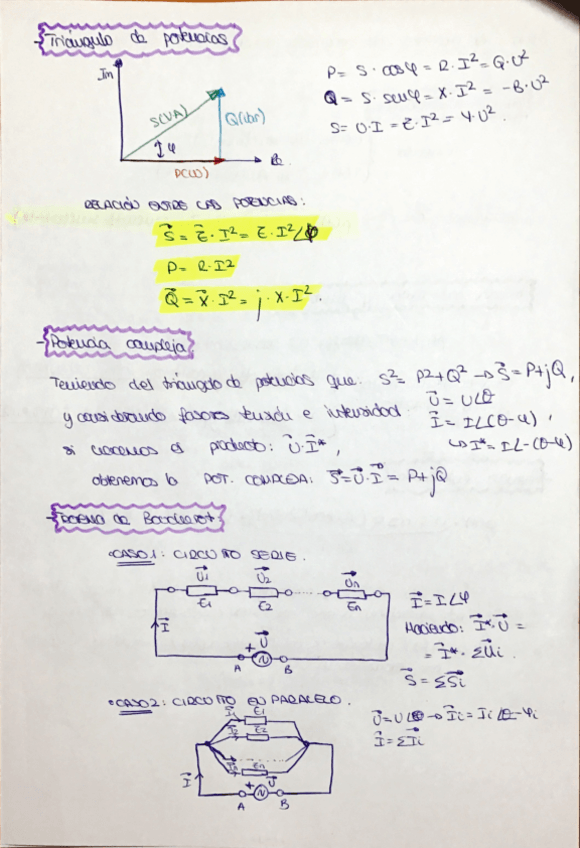 -Triángulo de potencias
Im
S(VA)
Q(Var)
φ
P(W)
Re
P= S · cosφ = R·I² = G·U²
Q = S · senφ = X·I² = -B·U²
S= U·I = Z·I² = Y·U²
RELACIÓN ENTRE LAS POTENCIAS:
S⃗ = Z⃗ · I² = Z · I²∠φ
P= R·I²
Q⃗ = X⃗·I² = j·X·I².
-Potencia compleja
Teniendo del triángulo de potencias que S² = P²+Q² → S⃗ = P+jQ,
y considerando fasores tensión e intensidad: U⃗ = U∠θ
I⃗ = I∠(θ-φ),
si hacemos el producto: U⃗·I*, ↳ I* = I∠-(θ-φ)
obtenemos la POT. COMPLEJA: S⃗=U⃗·I⃗ = P+jQ
-Teorema de Boucherot
•CASO 1: CIRCUITO SERIE.
U⃗1 U⃗2 U⃗n
Z1 Z2 Zn
I⃗
+ U⃗
A B
I⃗ = I∠φ
Haciendo: I⃗*·U⃗ =
= I⃗* · ΣU⃗i.
S⃗ = ΣS⃗i
•CASO 2: CIRCUITO EN PARALELO.
I1 Z1
I2 Z2
Zn
I⃗
+ U⃗
A B
U⃗=U∠θ → I⃗i = Ii∠θ-φi
I⃗ = ΣI⃗i